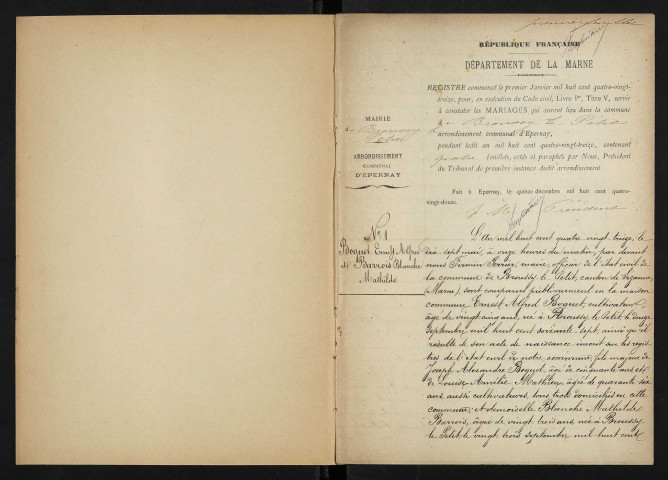 premier feuillet
RÉPUBLIQUE FRANÇAISE
DÉPARTEMENT DE LA MARNE
REGISTRE commencé le premier Janvier mil huit cent quatre-vingt-
treize, pour, en exécution du Code civil, Livre Ier, Titre V, servir
à constater les MARIAGES qui auront lieu dans la commune
de Broussy le Petit
arrondissement communal d'Epernay,
pendant ledit an mil huit cent quatre-vingt-treize, contenant
quatre feuillets, cotés et paraphés par Nous, Président
du Tribunal de première instance dudit arrondissement
Fait à Epernay, le quinze décembre mil huit cent quatre-
vingt-douze.
Président
MAIRIE
de Broussy
Petit
ARRONDISSEMENT
COMMUNAL
D'ÉPERNAY
No 1
Boquet Ernest Alfred
et Barrois Blanche
Mathilde
L'an mil huit cent quatre vingt treize, le
dix sept mai, à onze heures du matin, par devant
nous Firmin Perrin, maire, officier de l'état civil de
la commune de Broussy le Petit, canton de Sézanne
(Marne), sont comparus publiquement en la maison
commune, Ernest Alfred Boquet, cultivateur,
âgé de vingt cinq ans, né à Broussy le Petit le
septembre mil huit cent soixante-sept, ainsi qu'il
résulte de son acte de naissance inscrit sur les regis-
tres de l'état civil de notre commune, fils majeur de
Joseph Alexandre Boquet, âgé de cinquante ans et
de Louise Amélie Mathieu, âgée de quarante six
ans, aussi cultivateurs, tous trois domiciliés en cette
commune; et demoiselle Blanche Mathilde
Barrois, âgée de vingt trois ans, née à Broussy
le Petit le vingt trois septembre mil huit cent